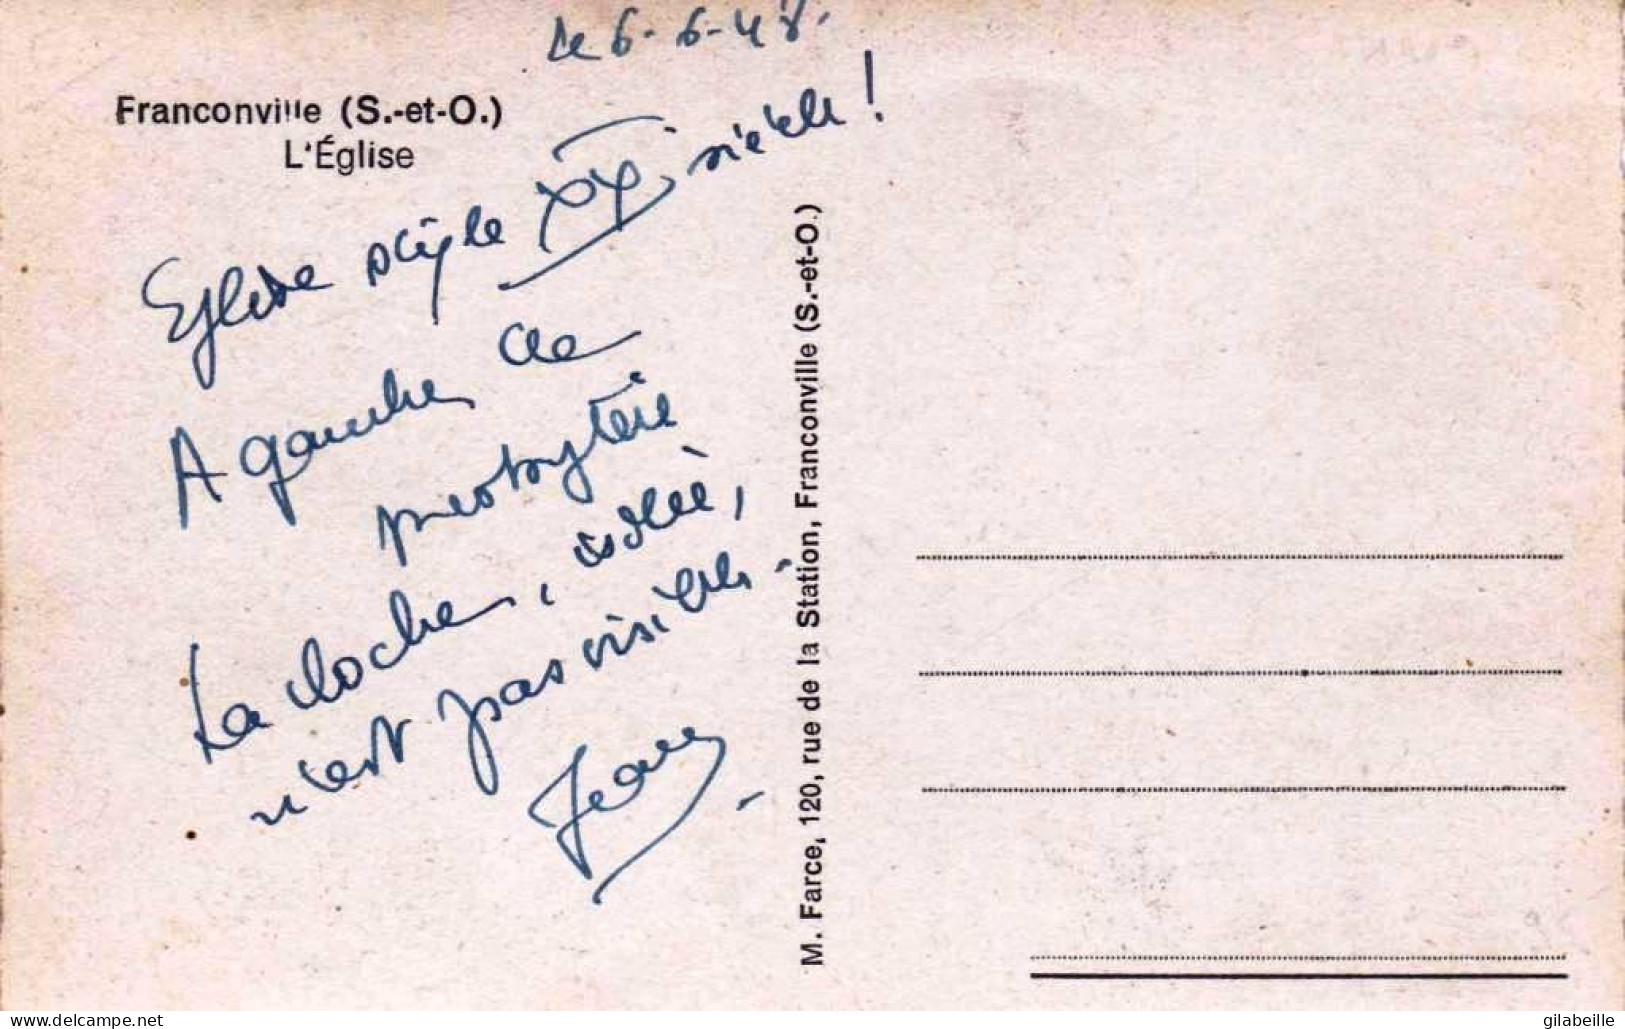 Le 6-6-48.
Franconville (S.-et-O.)
L'Église
Eglise style XX, siècle !
A gauche le
presbytère
La cloche, isolée,
n'est pas visible.
Jean
M. Farce, 120, rue de la Station, Franconville (S.-et-O.)
delcampe.net
gilabeille